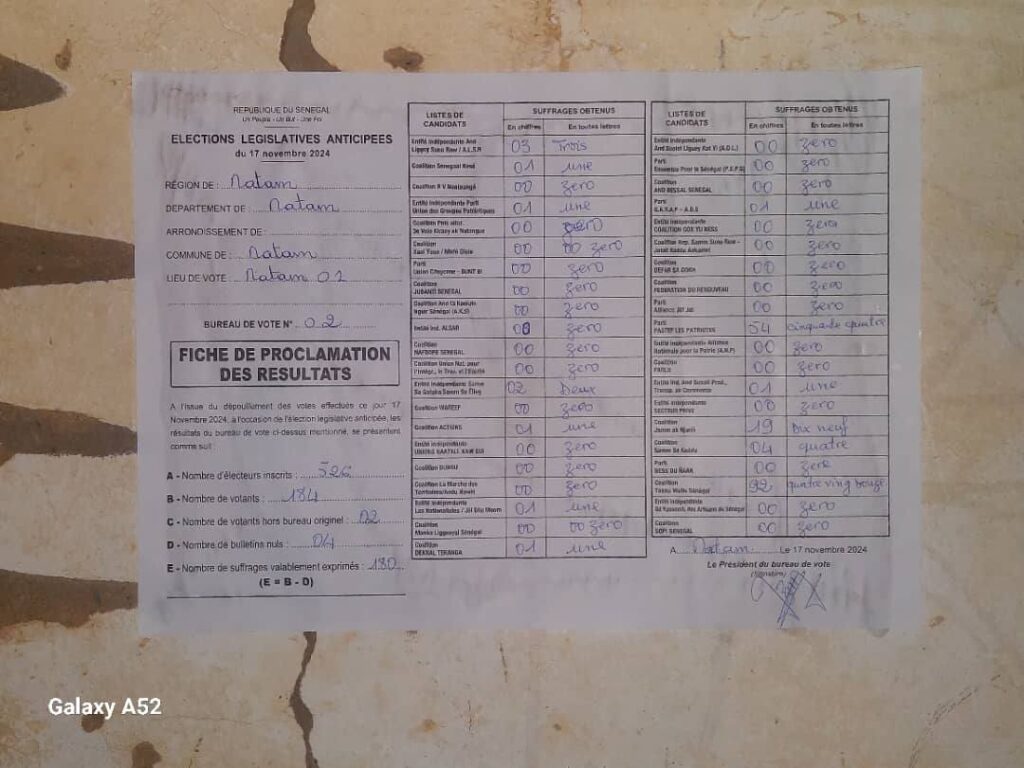 REPUBLIQUE DU SENEGAL
Un Peuple - Un But - Une Foi
ELECTIONS LEGISLATIVES ANTICIPEES
du 17 novembre 2024
RÉGION DE : Matam
DEPARTEMENT DE : Matam
ARRONDISSEMENT DE :
COMMUNE DE : Matam
LIEU DE VOTE : Matam 02
BUREAU DE VOTE N° 02
FICHE DE PROCLAMATION
DES RESULTATS
A l'issue du dépouillement des voies effectués ce jour 17
Novembre 2024, à l'occasion de l'élection législative anticipée, les
résultats du bureau de vote ci-dessus mentionné, se présentent
comme suit :
A - Nombre d'électeurs inscrits : 526
B - Nombre de votants : 184
C - Nombre de votants hors bureau originel : 02
D - Nombre de bulletins nuls : 04
E - Nombre de suffrages valablement exprimés : 180
(E = B - D)
LISTES DE CANDIDATS SUFFRAGES OBTENUS
En chiffres En toutes lettres
Entité Indépendante And 03 Trois
Coalition Senegaal Kese 01 une
Coalition 00 zero
Entité Indépendante Parti
Union des Groupes Patriotiques 01 une
Coalition 00 zero
Coalition 00 00 zero
Parti
Union Citoyenne - BUNT BI 00 zero
Coalition
JUBANTI SENEGAL 00 zero
Coalition And
Ngur Sénégal (A.K.S) 00 zero
Entité Ind. ALSAR 00 zero
Coalition
NAFOORE SENEGAL 00 zero
Coalition Union Nat. pour 00 zero
Entité Indépendante 02 Deux
Coalition WAREEF 00 zero
Coalition ACTIONS 01 une
Entité Indépendante 00 zero
Coalition GUNDU 00 zero
Coalition La Marche des
Territoires/Andu Nawle 00 zero
Entité Indépendante
Les Nationalistes 01 une
Coalition
Manko Liggeeyal Sénégal 00 00 zero
Coalition
DEKKAL TERANGA 01 une
LISTES DE CANDIDATS SUFFRAGES OBTENUS
En chiffres En toutes lettres
Entité Indépendante 00 zero
Parti
Ensemble Pour le Sénégal 00 zero
Coalition
AND BESSAL SENEGAL 00 zero
Parti 01 une
Entité Indépendante 00 zero
Coalition Rep. Samm Sunu Rew - 00 zero
Coalition
DEFAR SA GOKH 00 zero
Coalition
FEDERATION DU RENOUVEAU 00 zero
Parti
Alliance Jëf Jël 00 zero
Parti
PASTEF LES PATRIOTES 54 cinquante quatre
Entité Indépendante Alliance
Nationale pour la Patrie (A.N.P) 00 zero
Coalition
FARLU 00 zero
Entité Ind. 01 une
Entité Indépendante
SECTEUR PRIVE 00 zero
Coalition
Jamm ak Njariñ 19 Dix neuf
Coalition
Samm Sa Kaddu 04 quatre
Parti
BESS DU ÑAKK 00 zero
Coalition
Takku Wallu Sénégal 92 quatre ving douze
Entité Indépendante 00 zero
Coalition
SOPI SENEGAL 00 zero
A Matam Le 17 novembre 2024
Le Président du bureau de vote
(Signature)
Galaxy A52